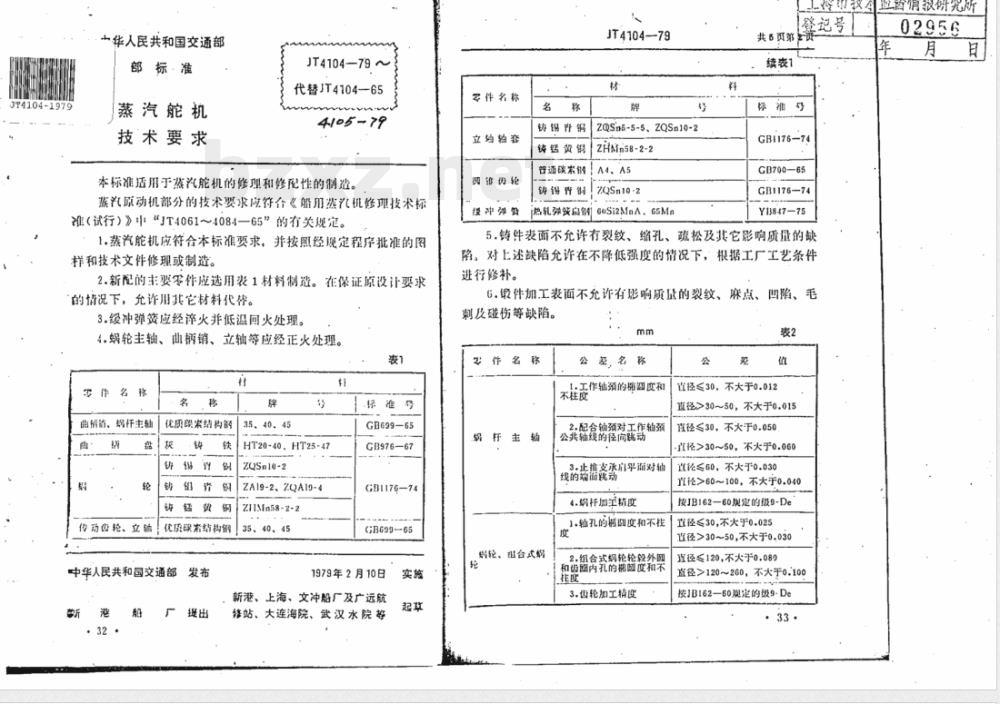 中华人民共和国交通部
部标准
JT4104-1979
蒸汽舵机
技术要求
JT4104—79～
代替JT4104—65
4105-79
本标准适用于蒸汽舵机的修理和修配性的制造。
蒸汽原动机部分的技术要求应符合《船用蒸汽机修理技术标
准(试行)》中“JT4061～4084—65”的有关规定。
1.蒸汽舵机应符合本标准要求，并按照经规定程序批准的图
样和技术文件修理或制造。
2.新配的主要零件应选用表1材料制造。在保证原设计要求
的情况下，允许用其它材料代替。
3.缓冲弹簧应经淬火并低温回火处理。
4.蜗轮主轴、曲柄销、立轴等应经正火处理。
表1
零件名称 材料
名称 牌号 标准号
曲柄销、蜗杆主轴 优质碳素结构钢 35、40、45 GB699—65
曲柄盘 灰铸铁 HT20-40、HT25-47 GB976—67
蜗轮 铸锡青铜 ZQSn10-2 GB1176—74
铸铝青铜 ZA19-2、ZQA19-4
铸锰黄铜 ZHMn58-2-2
传动齿轮、立轴 优质碳素结构钢 35、40、45 GB699—65
中华人民共和国交通部 发布 1979年2月10日 实施
新港船厂提出 新港、上海、文冲船厂及广远航
修站、大连海院、武汉水院等 起草
• 32 •
JT4104—79
共6页第2页
登记号 02956
年 月 日
续表1
零件名称 材料
名称 牌号 标准号
立轴轴套 铸锡青铜 ZQSn6-5-5、ZQSn10-2 GB1176—74
铸锰黄铜 ZHMn58-2-2
圆锥齿轮 普通碳素钢 A4、A5 GB700—65
铸锡青铜 ZQSn10-2 GB1176—74
缓冲弹簧 热轧弹簧扁钢 60Si2MnA、65Mn YB847—75
5.铸件表面不允许有裂纹、缩孔、疏松及其它影响质量的缺
陷。对上述缺陷允许在不降低强度的情况下，根据工厂工艺条件
进行修补。
6.锻件加工表面不允许有影响质量的裂纹、麻点、凹陷、毛
刺及碰伤等缺陷。
mm 表2
零件名称 公差名称 公差值
蜗杆主轴 1.工作轴颈的椭圆度和不柱度 直径≤30，不大于0.012
直径>30～50，不大于0.015
2.配合轴颈对工作轴颈公共轴线的径向跳动 直径≤30，不大于0.050
直径>30～50，不大于0.060
3.止推支承肩平面对轴线的端面跳动 直径≤60，不大于0.030
直径>60～100，不大于0.040
4.蜗杆加工精度 按JB162—60规定的级9-De
蜗轮、组合式蜗轮 1.轴孔的椭圆度和不柱度 直径≤30，不大于0.025
直径>30～50，不大于0.030
2.组合式蜗轮轮毂外圆和齿圈内孔的椭圆度和不柱度 直径≤120，不大于0.080
直径>120～260，不大于0.100
3.齿轮加工精度 按JB162—60规定的级9-De
• 33 •